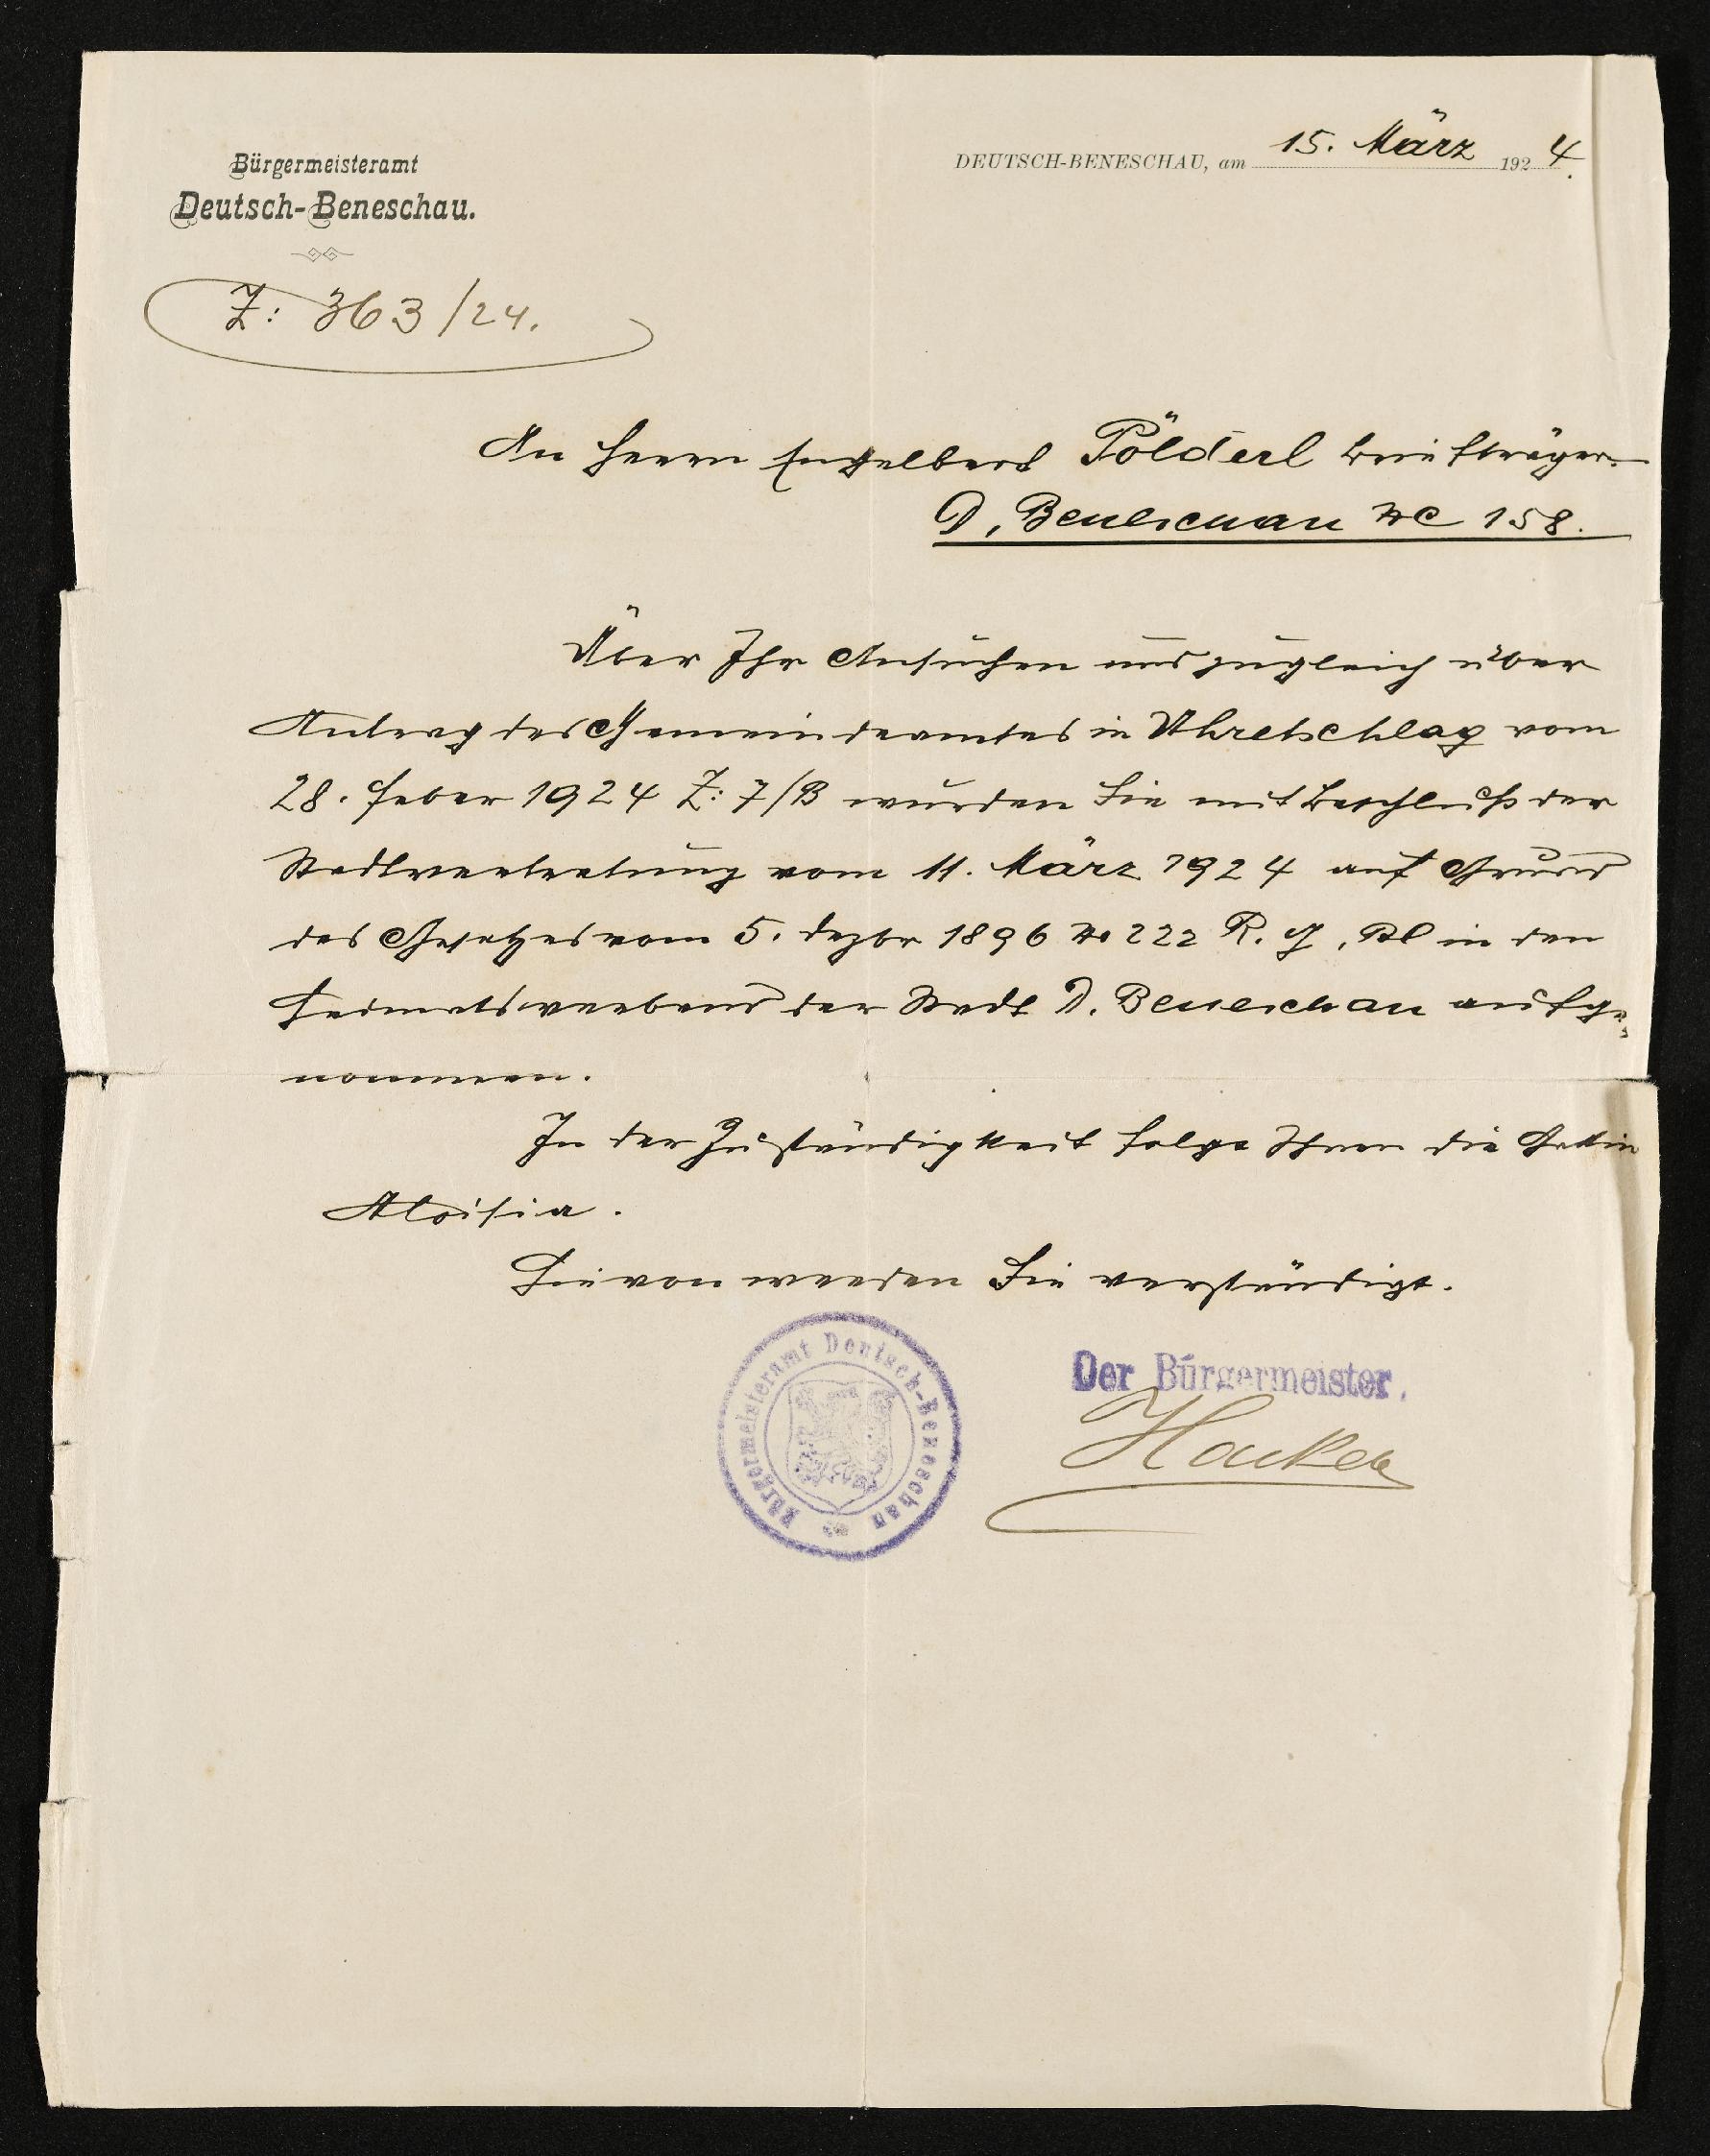 Bürgermeisteramt
Deutsch-Beneschau.
DEUTSCH-BENESCHAU, am 15. März 1924.
Z: 363/24.
An Herrn Engelbert Pölderl Briefträger
D. Beneschau NC 158.
Über Ihr Ansuchen und zugleich über
Antrag des Gemeindeamtes in Uhretschlag vom
28. Feber 1924 Z: 7/B wurden Sie mit Beschluß der
Stadtvertretung vom 11. März 1924 auf Grund
des Gesetzes vom 5. Dezbr 1896 No 222 R. G. Bl in den
Heimatsverband der Stadt D. Beneschau aufge-
nommen.
In der Zuständigkeit folge Ihnen die Gattin
Aloisia.
Hievon werden Sie verständigt.
Der Bürgermeister.
Bürgermeisteramt Deutsch-Beneschau